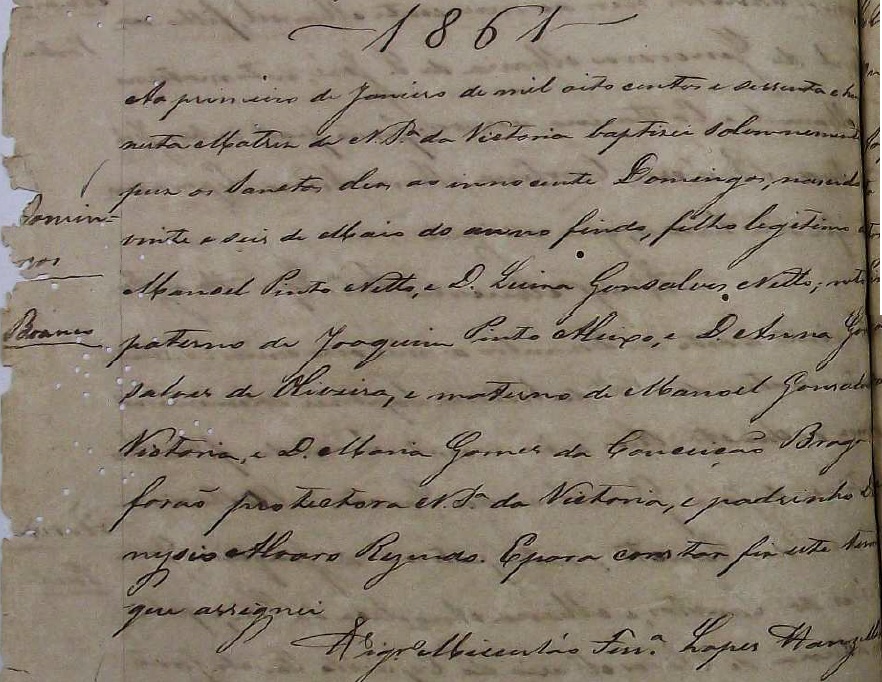 1861
Ao primeiro de Janeiro de mil oito centos e sessenta e hum
nesta Matriz de N. Sra. da Victoria baptizei solemnemente
puz os Sanctos oleos ao innocente Domingos, nascido
vinte e seis de Maio do anno findo, filho legitimo
Domin=
gos
Manoel Pinto Netto, e D. Luiza Gonsalves Netto; neto
Branco
paterno de Joaquim Pinto Aleixo, e D. Anna Gon
salves de Oliveira, e materno de Manoel Gonsalves
Victoria, e D. Maria Gomes da Conceição Braga
forão protectora N. Sra. da Victoria, e padrinho Di
nysio Alvaro Rezendo. E para constar fiz este termo
que assignei
Lopes